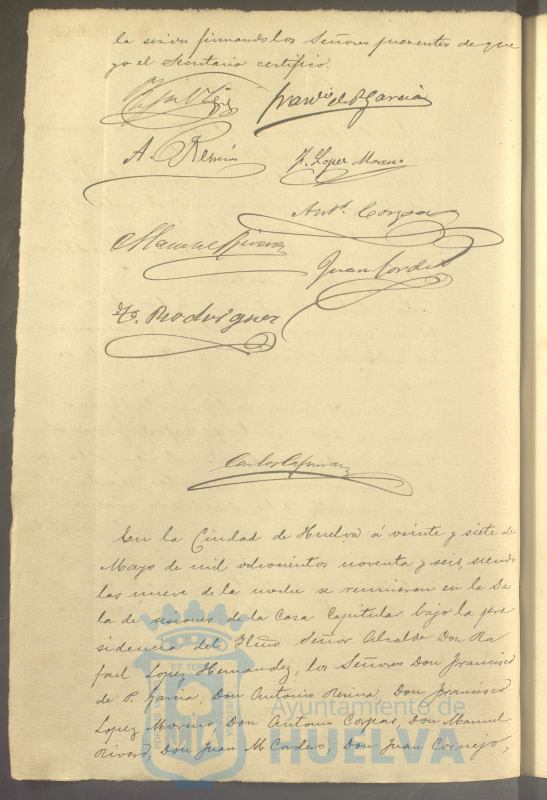 la sesión firmando los Señores presentes de que
yo el Secretario certifico.
Franco de P. Garcia
A. Resina
F. Lopez Moreno
Anto. Corpas
Manuel Rivero
Juan Cordero
Fo. Rodriguez
Carlos
En la Ciudad de Huelva á veinte y siete de
Mayo de mil ochocientos noventa y seis, siendo
las nueve de la noche se reunieron en la Sa
la de sesiones de la Casa Capitular bajo la pre
sidencia del Iltmo Señor Alcalde Don Ra
fael Lopez Hernandez, los Señores Don Francisco
de P. Garcia, Don Antonio Resina, Don Francisco
Lopez Moreno, Don Antonio Corpas, Don Manuel
Rivero, Don Juan M. Cordero, Don Juan Cornejo,
Ayuntamiento de
HUELVA